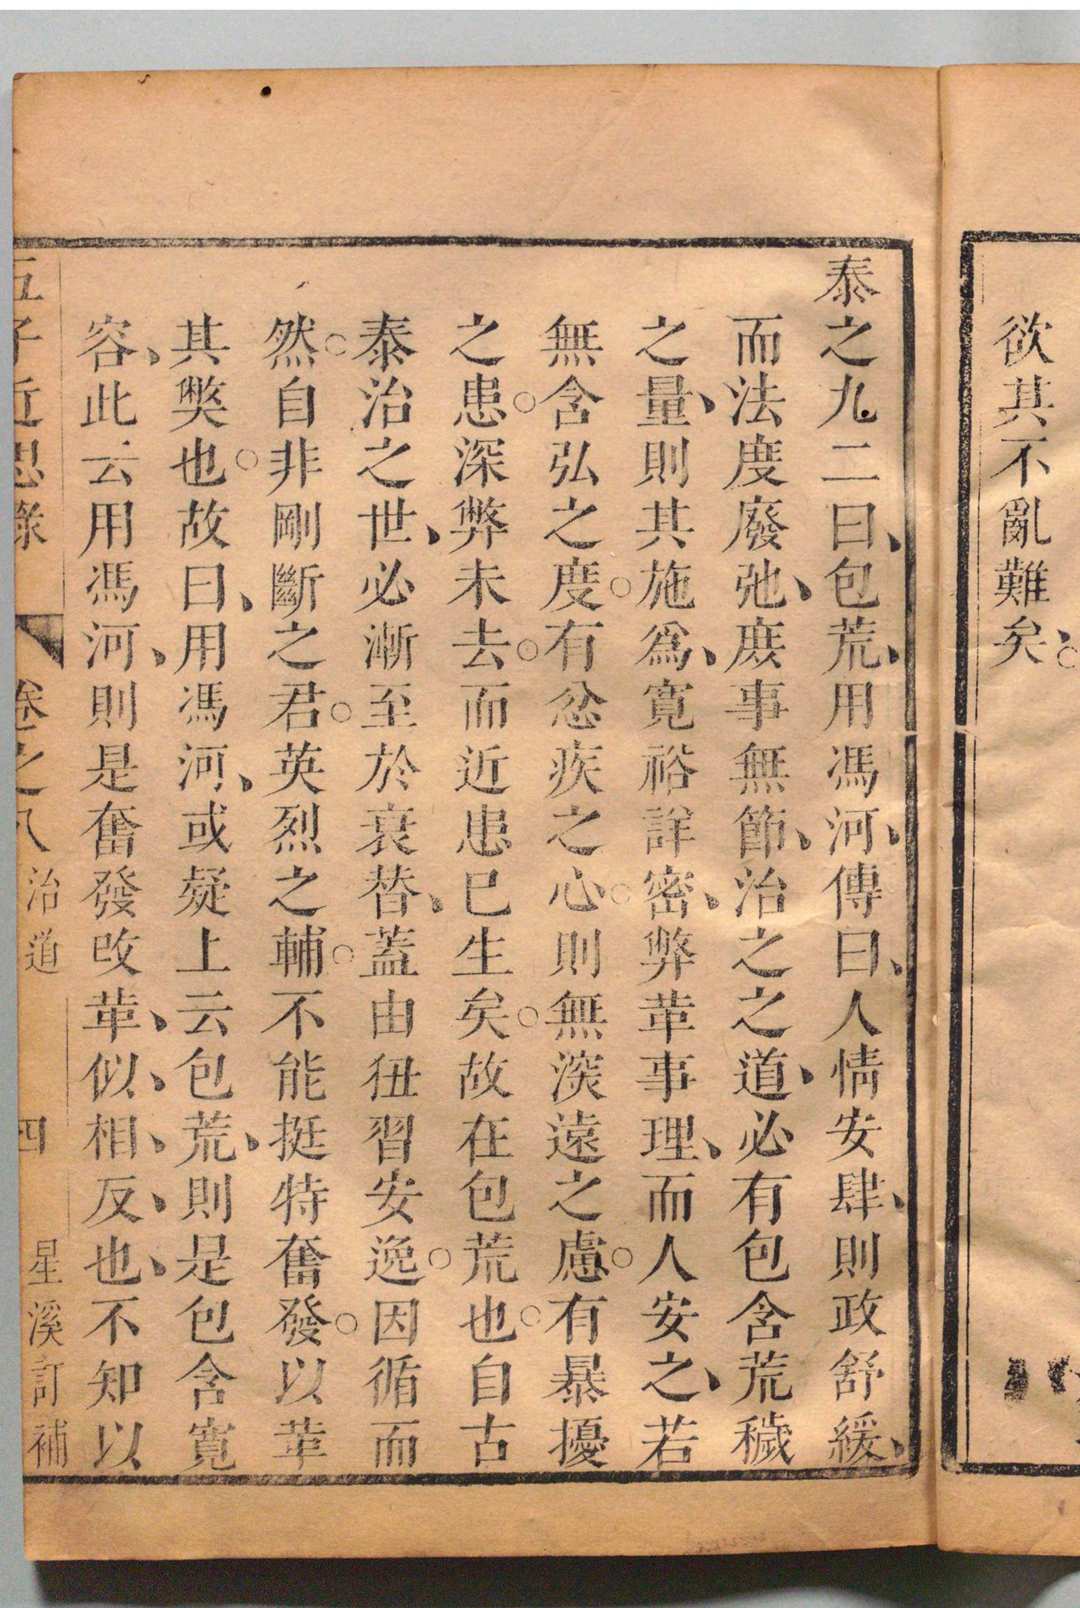 欲其不亂難矣
泰之九二曰包荒用馮河傳曰人情安肆則政舒緩
而法度廢弛庶事無節治之之道必有包含荒穢
之量則其施爲寬裕詳密弊革事理而人安之若
無含弘之度有忿疾之心則無深遠之慮有暴擾
之患深弊未去而近患已生矣故在包荒也自古
泰治之世必漸至於衰替蓋由狃習安逸因循而
然自非剛斷之君英烈之輔不能挺特奮發以革
其弊也故曰用馮河或疑上云包荒則是包含寬
容此云用馮河則是奮發改革似相反也不知以
五子近思錄 卷之八 治道 四 星溪訂補